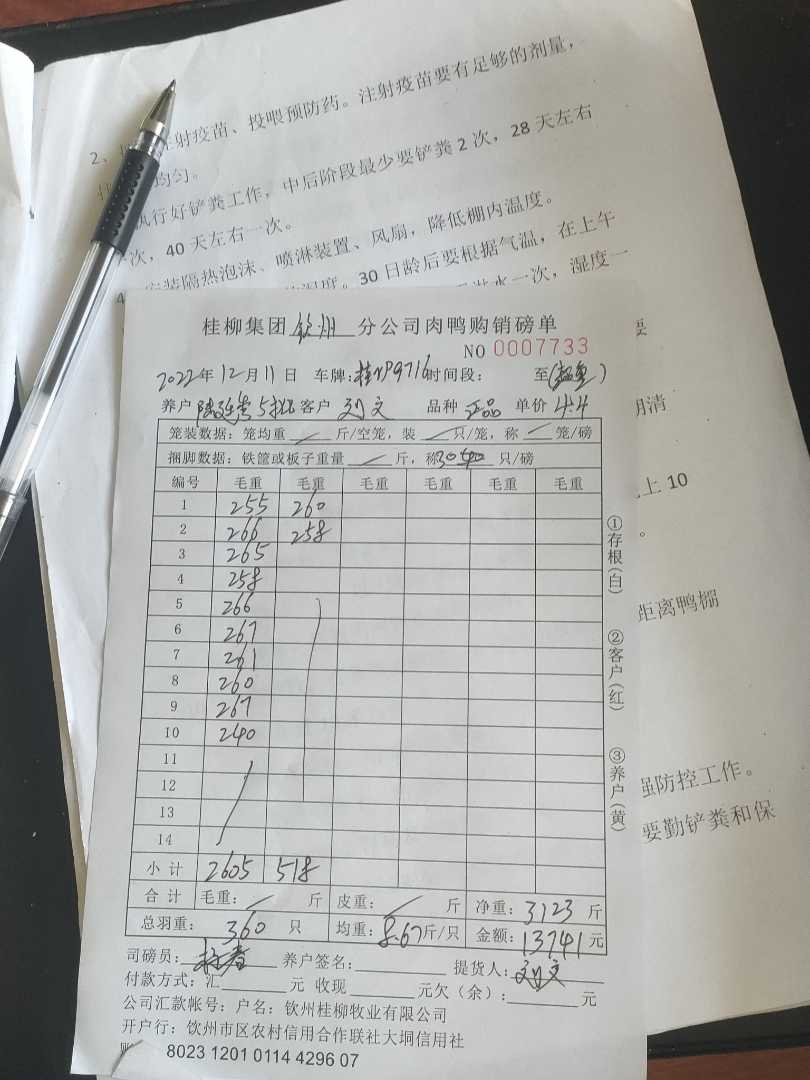 注射疫苗、投喂预防药。注射疫苗要有足够的剂量，
2、
均匀。
执行好铲粪工作，中后阶段最少要铲粪 2 次，28 天左右
次，40 天左右一次。
安装隔热泡沫、喷淋装置、风扇，降低棚内温度。
30 日龄后要根据气温，在上午
水一次，湿度一
要
清
上 10
距离鸭棚
强防控工作。
要勤铲粪和保
桂柳集团 钦州 分公司肉鸭购销磅单
NO 0007733
2022年 12月 11日 车牌: 9716 时间段: 至
养户 客户 刘文 品种 正品 单价 4.4
笼装数据: 笼均重 斤/空笼, 装 只/笼, 称 笼/磅
捆脚数据: 铁筐或板子重量 斤, 称 30 只/磅
编号 毛重 毛重 毛重 毛重 毛重 毛重
1 255 260
2 266 258
3 265
4 258
5 266
6 267
7 261
8 260
9 267
10 240
11
12
13
14
小计 2605 518
合计 毛重: 斤 皮重: 斤 净重: 3123 斤
总羽重: 360 只 均重: 8.67 斤/只 金额: 13741 元
司磅员: 养户签名: 提货人: 刘文
付款方式: 汇 元 收现 元欠（余）: 元
公司汇款帐号: 户名: 钦州桂柳牧业有限公司
开户行: 钦州市区农村信用合作联社大垌信用社
8023 1201 0114 4296 07
①存根(白)
②客户(红)
③养户(黄)